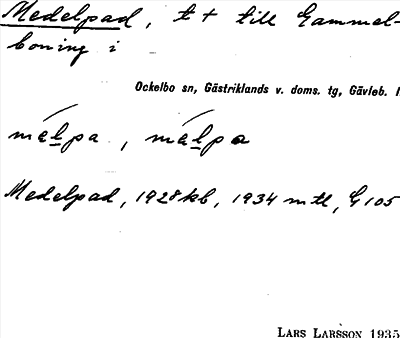 Medelpad, t t till Gammel-
boning i
Ockelbo sn, Gästriklands v. doms. tg, Gävleb. l
mélpa, mélpa
Medelpad, 1928 kb, 1934 mtl, G 105
LARS LARSSON 1935